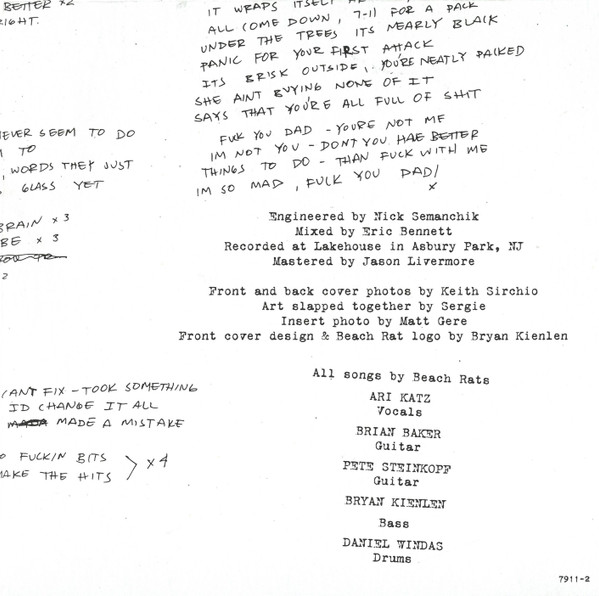 BETTER x2
RIGHT.
EVER SEEM TO DO
TO
, WORDS THEY JUST
GLASS YET
BRAIN x 3
BE x 3
2
CANT FIX - TOOK SOMETHING
ID CHANGE IT ALL
MADE A MISTAKE
FUCKIN BITS
MAKE THE HITS } x 4
IT WRAPS ITSELF
ALL COME DOWN, 7-11 FOR A PACK
UNDER THE TREES ITS NEARLY BLACK
PANIC FOR YOUR FIRST ATTACK
ITS BRISK OUTSIDE, YOU'RE NEATLY PACKED
SHE AINT BUYING NONE OF IT
SAYS THAT YOU'RE ALL FULL OF SHIT
FUK YOU DAD - YOURE NOT ME
IM NOT YOU - DONT YOU HAE BETTER
THINGS TO DO - THAN FUCK WITH ME
IM SO MAD, FUCK YOU DAD!
x
Engineered by Nick Semanchik
Mixed by Eric Bennett
Recorded at Lakehouse in Asbury Park, NJ
Mastered by Jason Livermore
Front and back cover photos by Keith Sirchio
Art slapped together by Sergie
Insert photo by Matt Gere
Front cover design & Beach Rat logo by Bryan Kienlen
All songs by Beach Rats
ARI KATZ
Vocals
BRIAN BAKER
Guitar
PETE STEINKOPF
Guitar
BRYAN KIENLEN
Bass
DANIEL WINDAS
Drums
7911-2